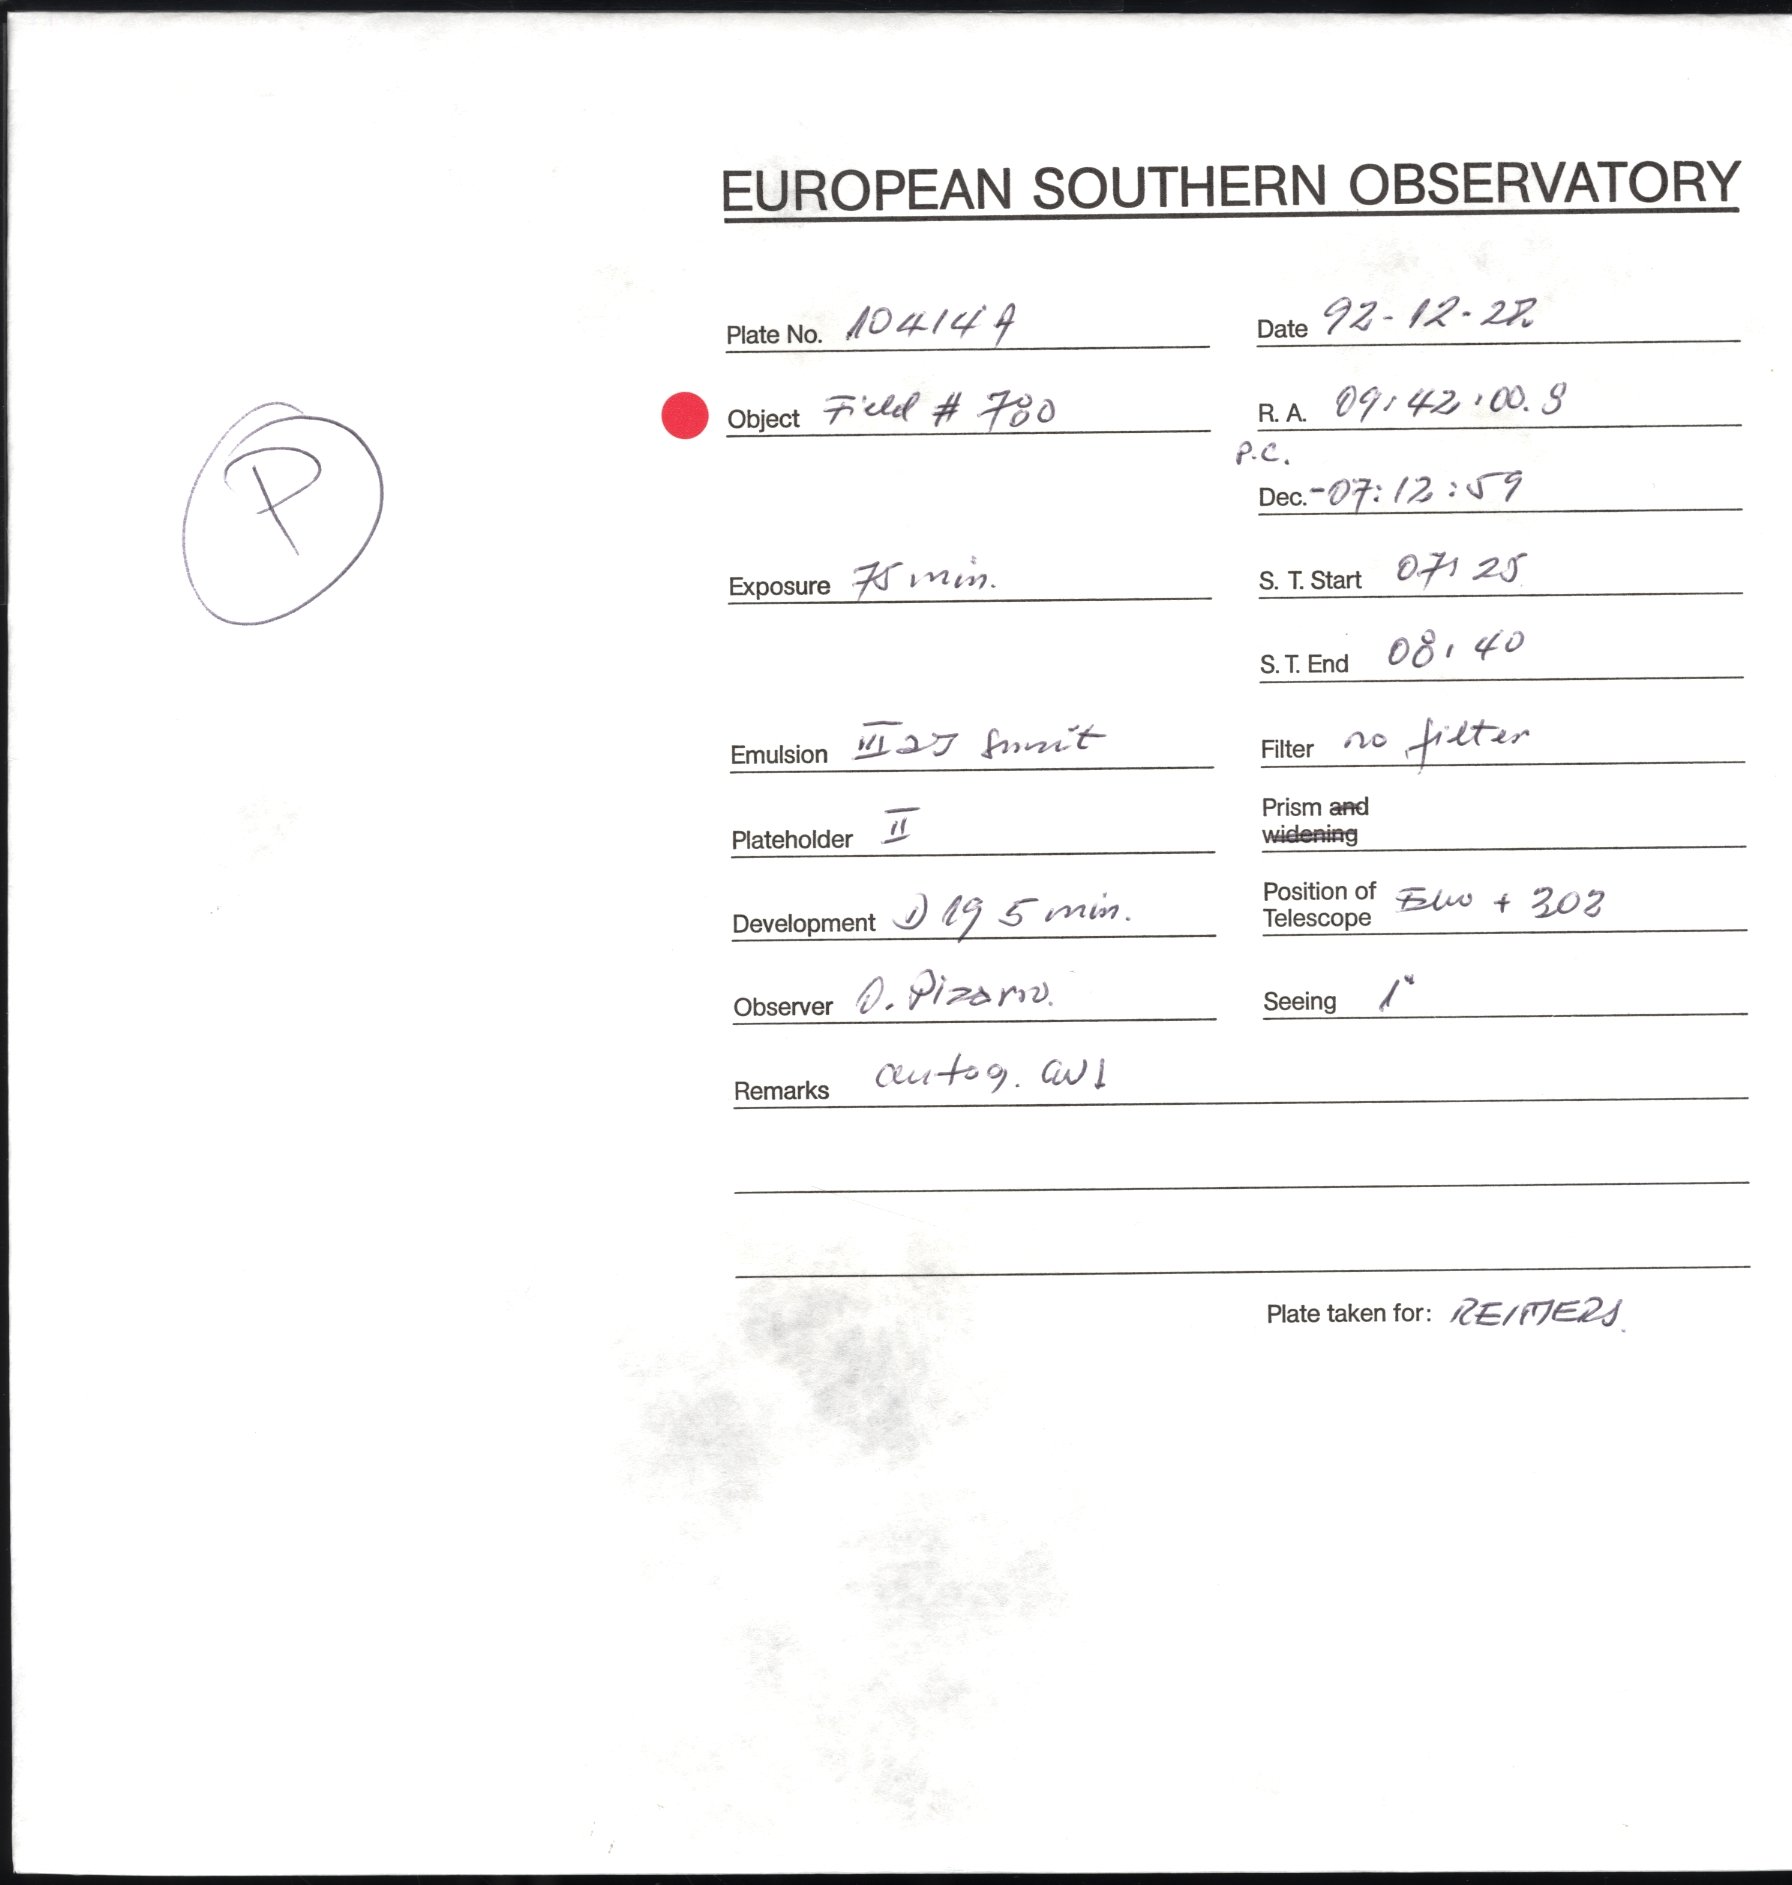 EUROPEAN SOUTHERN OBSERVATORY
Plate No. 10414A
Date 92-12-22
Object Field # 700
R. A. 09:42:00.8
P.C.
Dec. -07:12:59
P
Exposure 75 min.
S. T. Start 07:25
S. T. End 08:40
Emulsion III aJ
Filter no filter
Plateholder II
Prism and widening
Development D19 5 min.
Position of Telescope + 303
Observer O. Pizarro.
Seeing 1"
Remarks autog. GW1
Plate taken for: REIMERS.